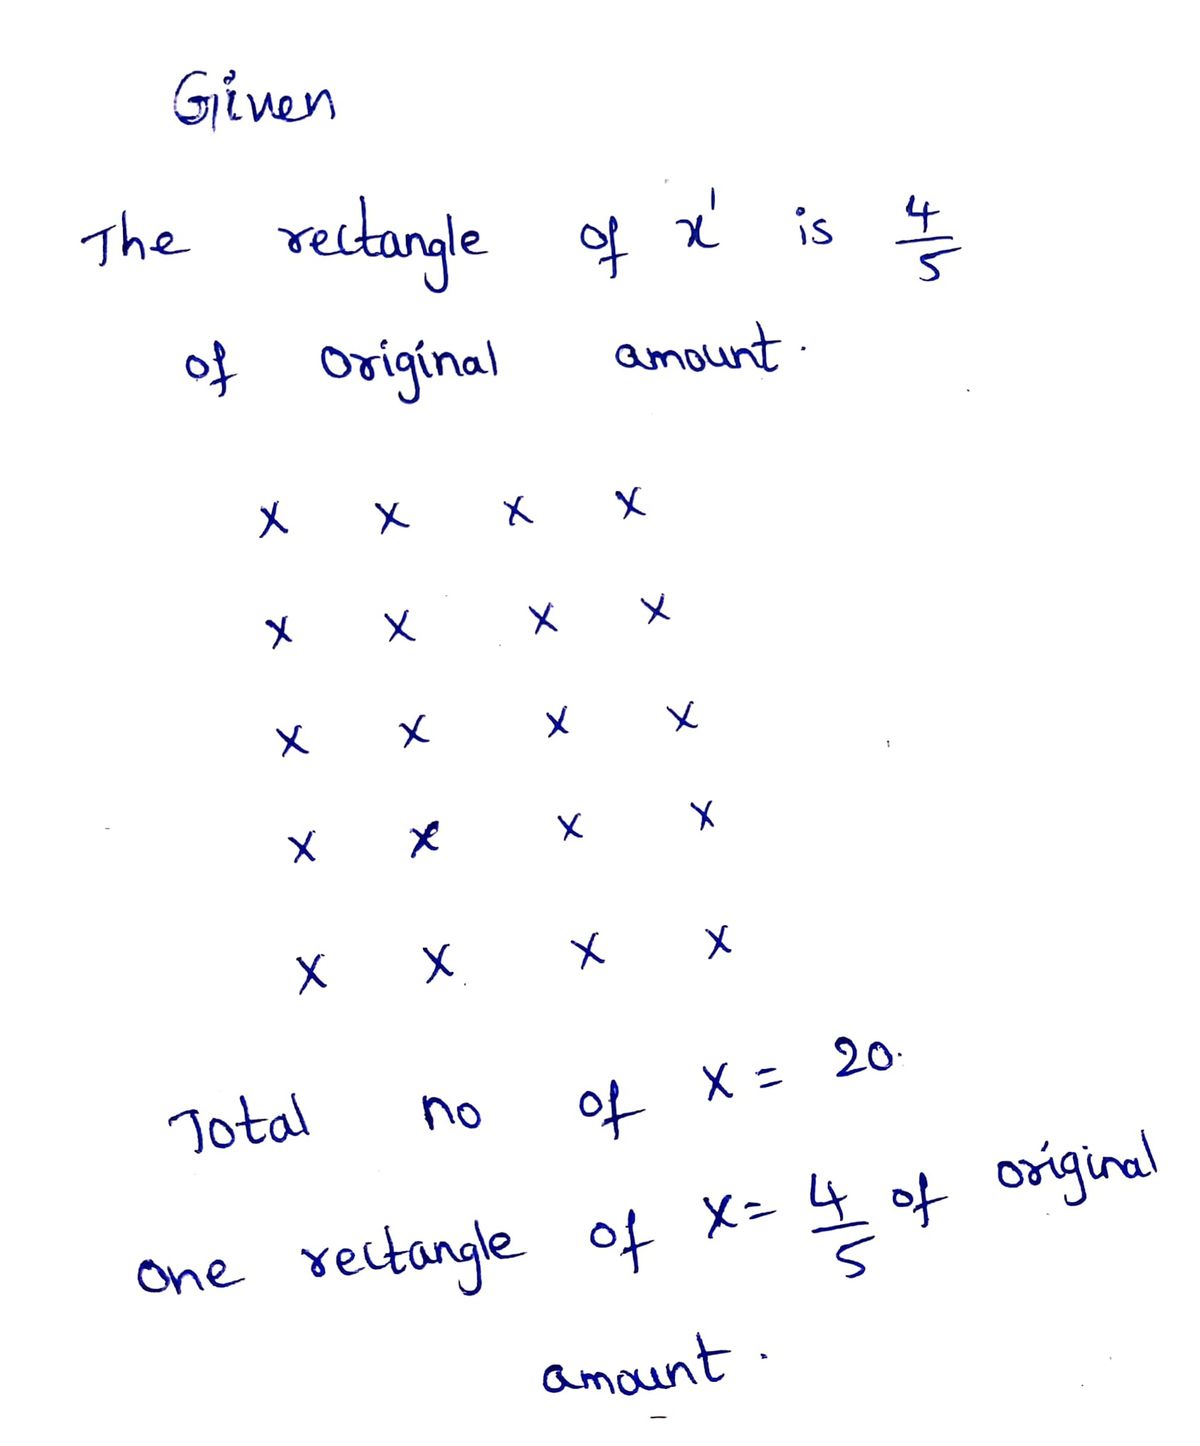 Given
The rectangle of x' is 4/5
of original amount.
x x x x
x x x x
x x x x
x x x x
x x x x
Total no of x = 20.
one rectangle of x = 4/5 of original
amount.